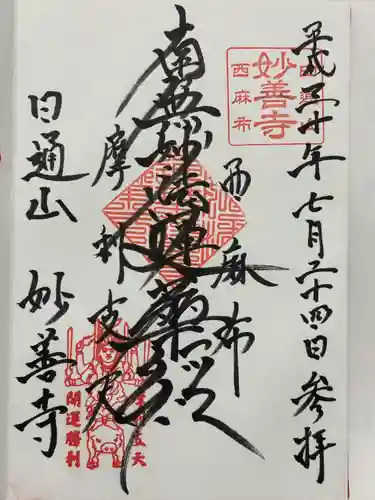 平成三十年七月二十四日参拝
西麻布
妙善寺
西麻布
南無妙法蓮華経
摩利支天
開運勝利
日通山 妙善寺